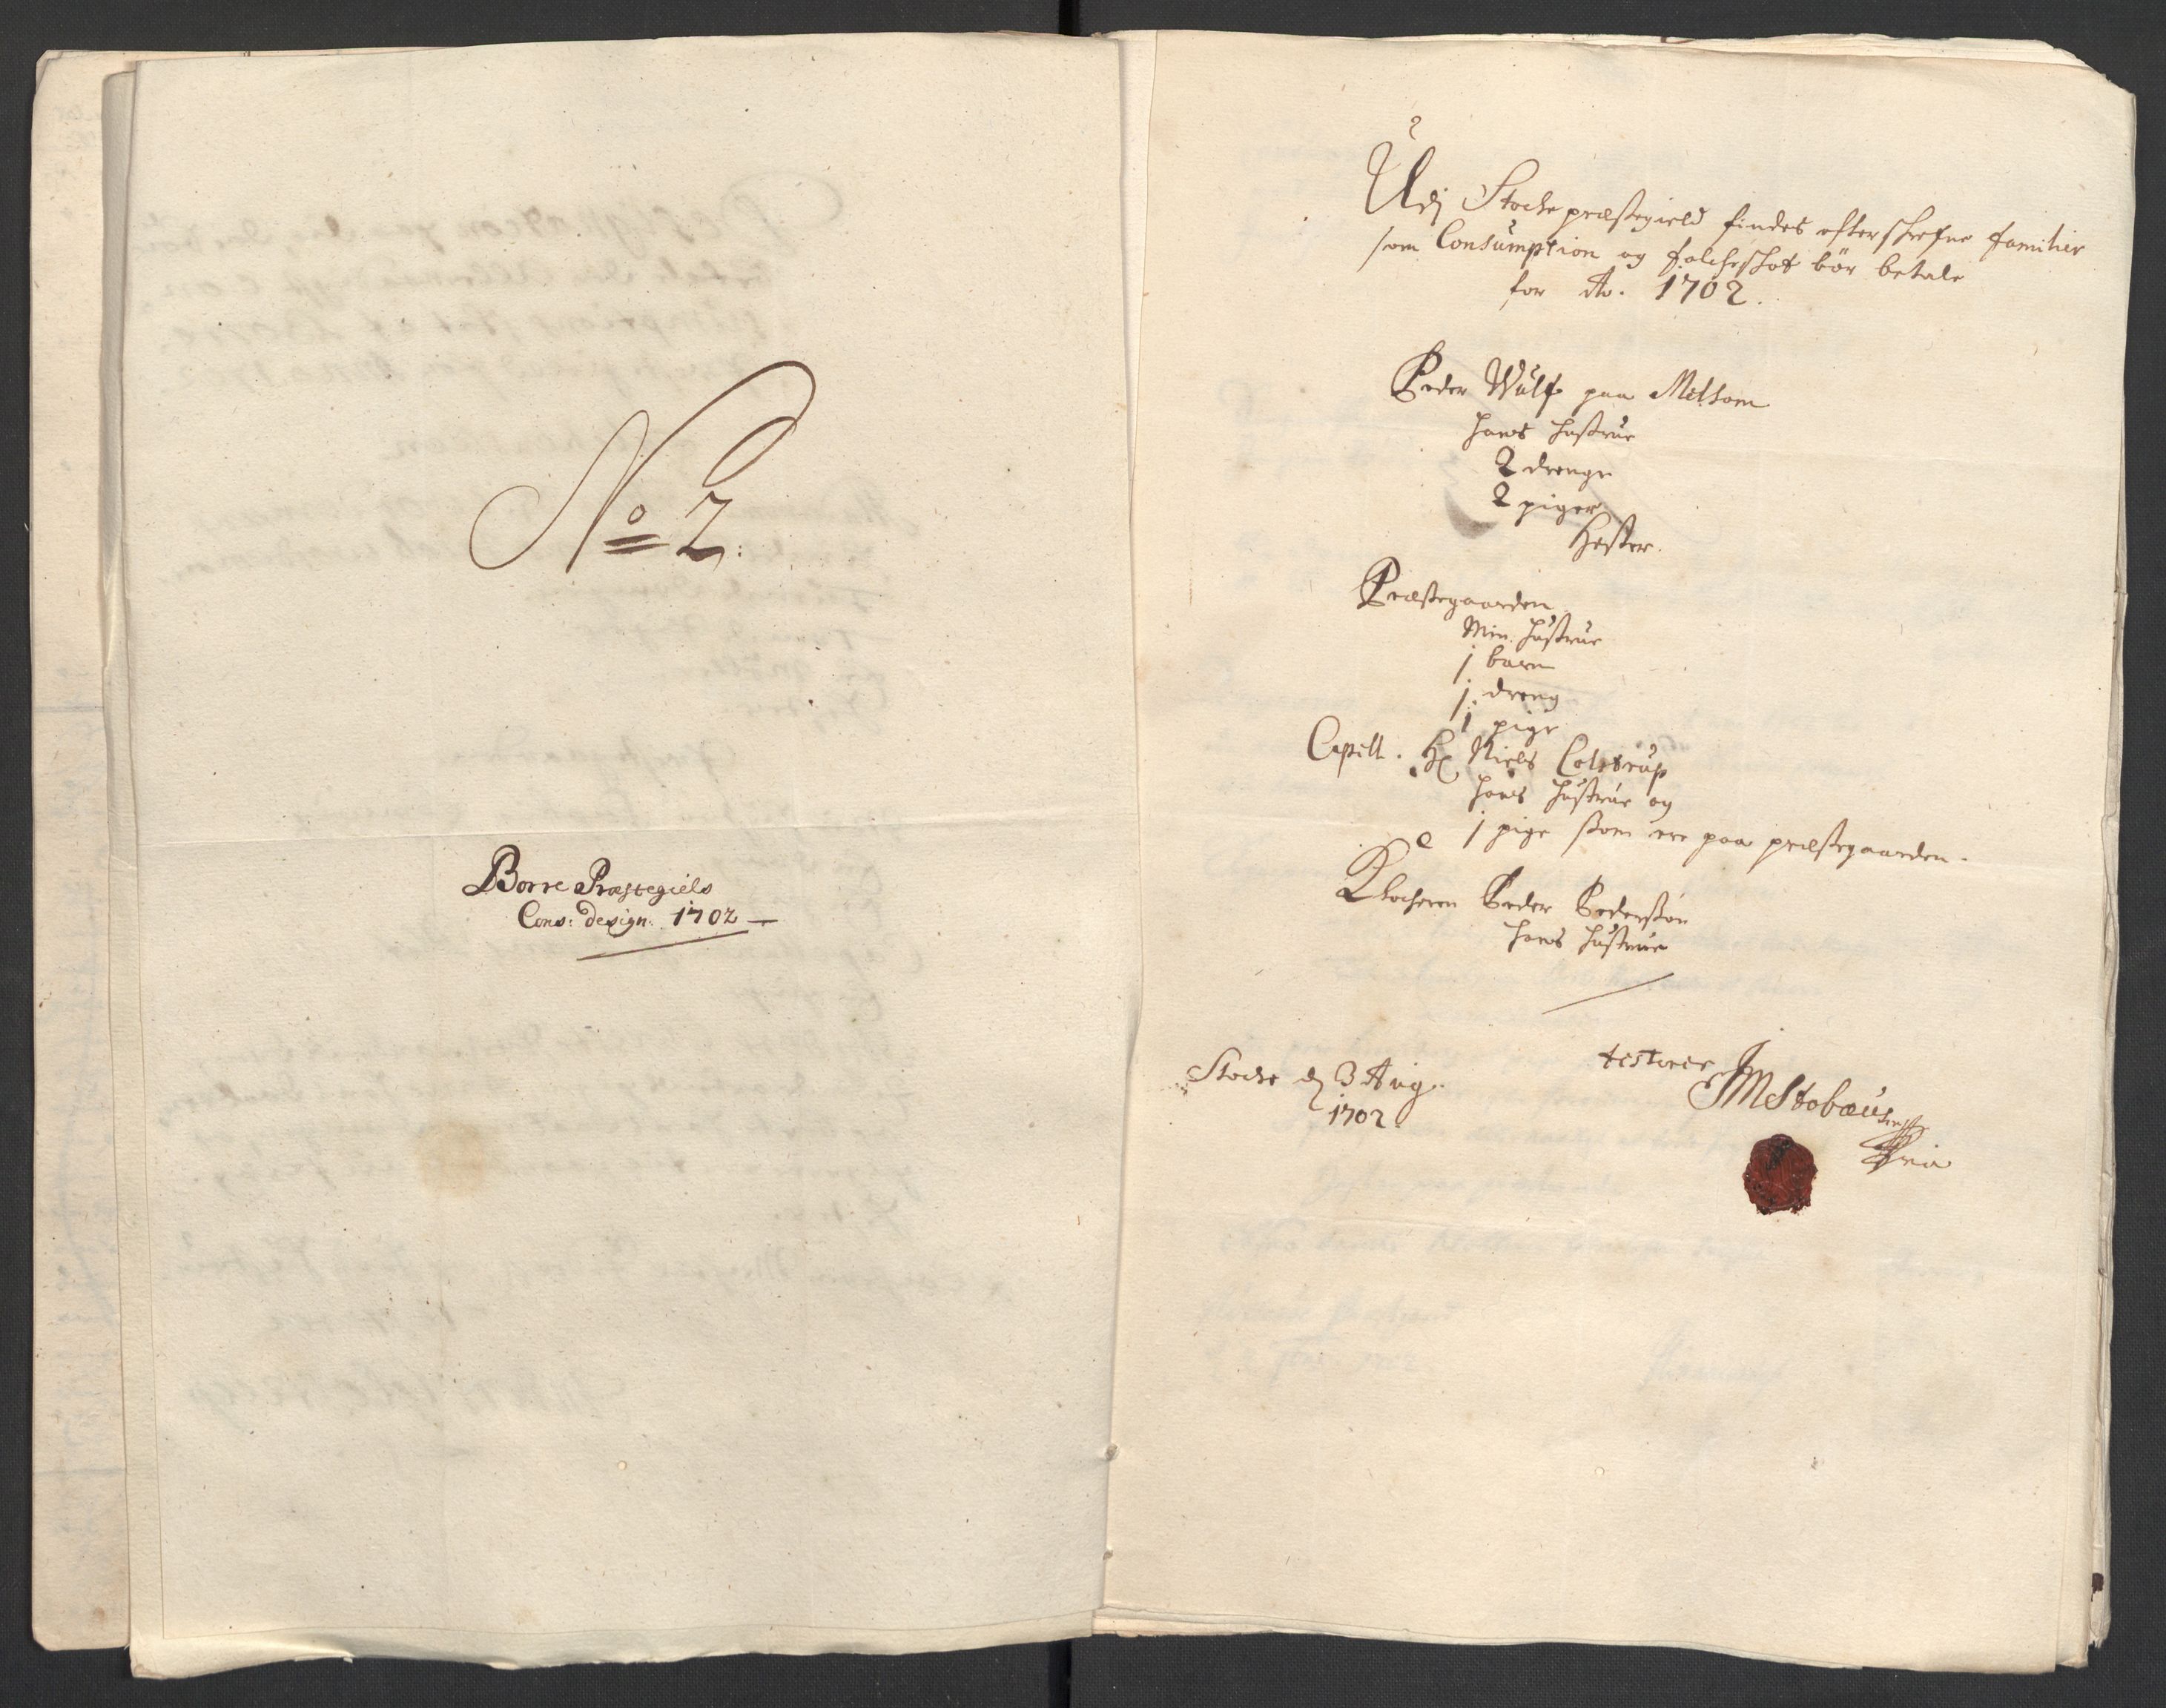 No 2:
Borre Præstegields
Cons: design: 1702
Udj Stocke præstegield findes efterschrefne familier
som Consumption og folcheskat bör betale
for Ao. 1702.
Peder Wulf paa Melsom
hans hustrue
2 drenge
2 piger
Hester.
Præstegaarden
Min hustrue
j barn
j dreng
j pige
Capell. Hr Niels Colstrup
hans hustrue og
j pige som ere paa præstegaarden.
Klocheren Peder Pedersøn
hans hustrue
Stocke d 3 Aug.
1702
testerer
JMStobæus